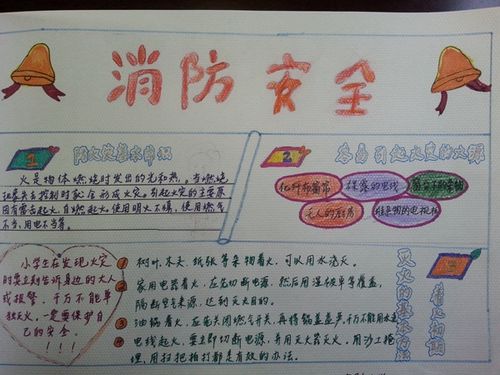 消防安全
1
防火安全基本常识
火是物体燃烧时发出的光和热，当燃烧
起来失去控制时就会形成火灾。引起火灾的主要原
因有雷击起火、自燃起火、使用明火不慎，使用燃气
不当、用电不当等。
2
容易引起火灾的火源
化纤布窗帘
裸露的电线
无人的厨房
堆杂物的电视柜
小学生在发现火灾
时要立刻告诉身边的大人
或报警，千万不能单
独灭火，一定要保护自
己的安全
！！！
1 树叶、木头、纸张等杂物着火，可以用水浇灭。
2 家用电器着火，应先切断电源，然后用湿被单等覆盖，
隔断空气来源，达到灭火目的。
3 油锅着火，应先关闭燃气开关，再将锅盖盖严，千万不能用水浇
4 电线起火，要立即切断电源，并用灭火器灭火，用沙土掩
埋、用扫把拍打都是有效的办法。
3
着火初期
灭火的基本方法